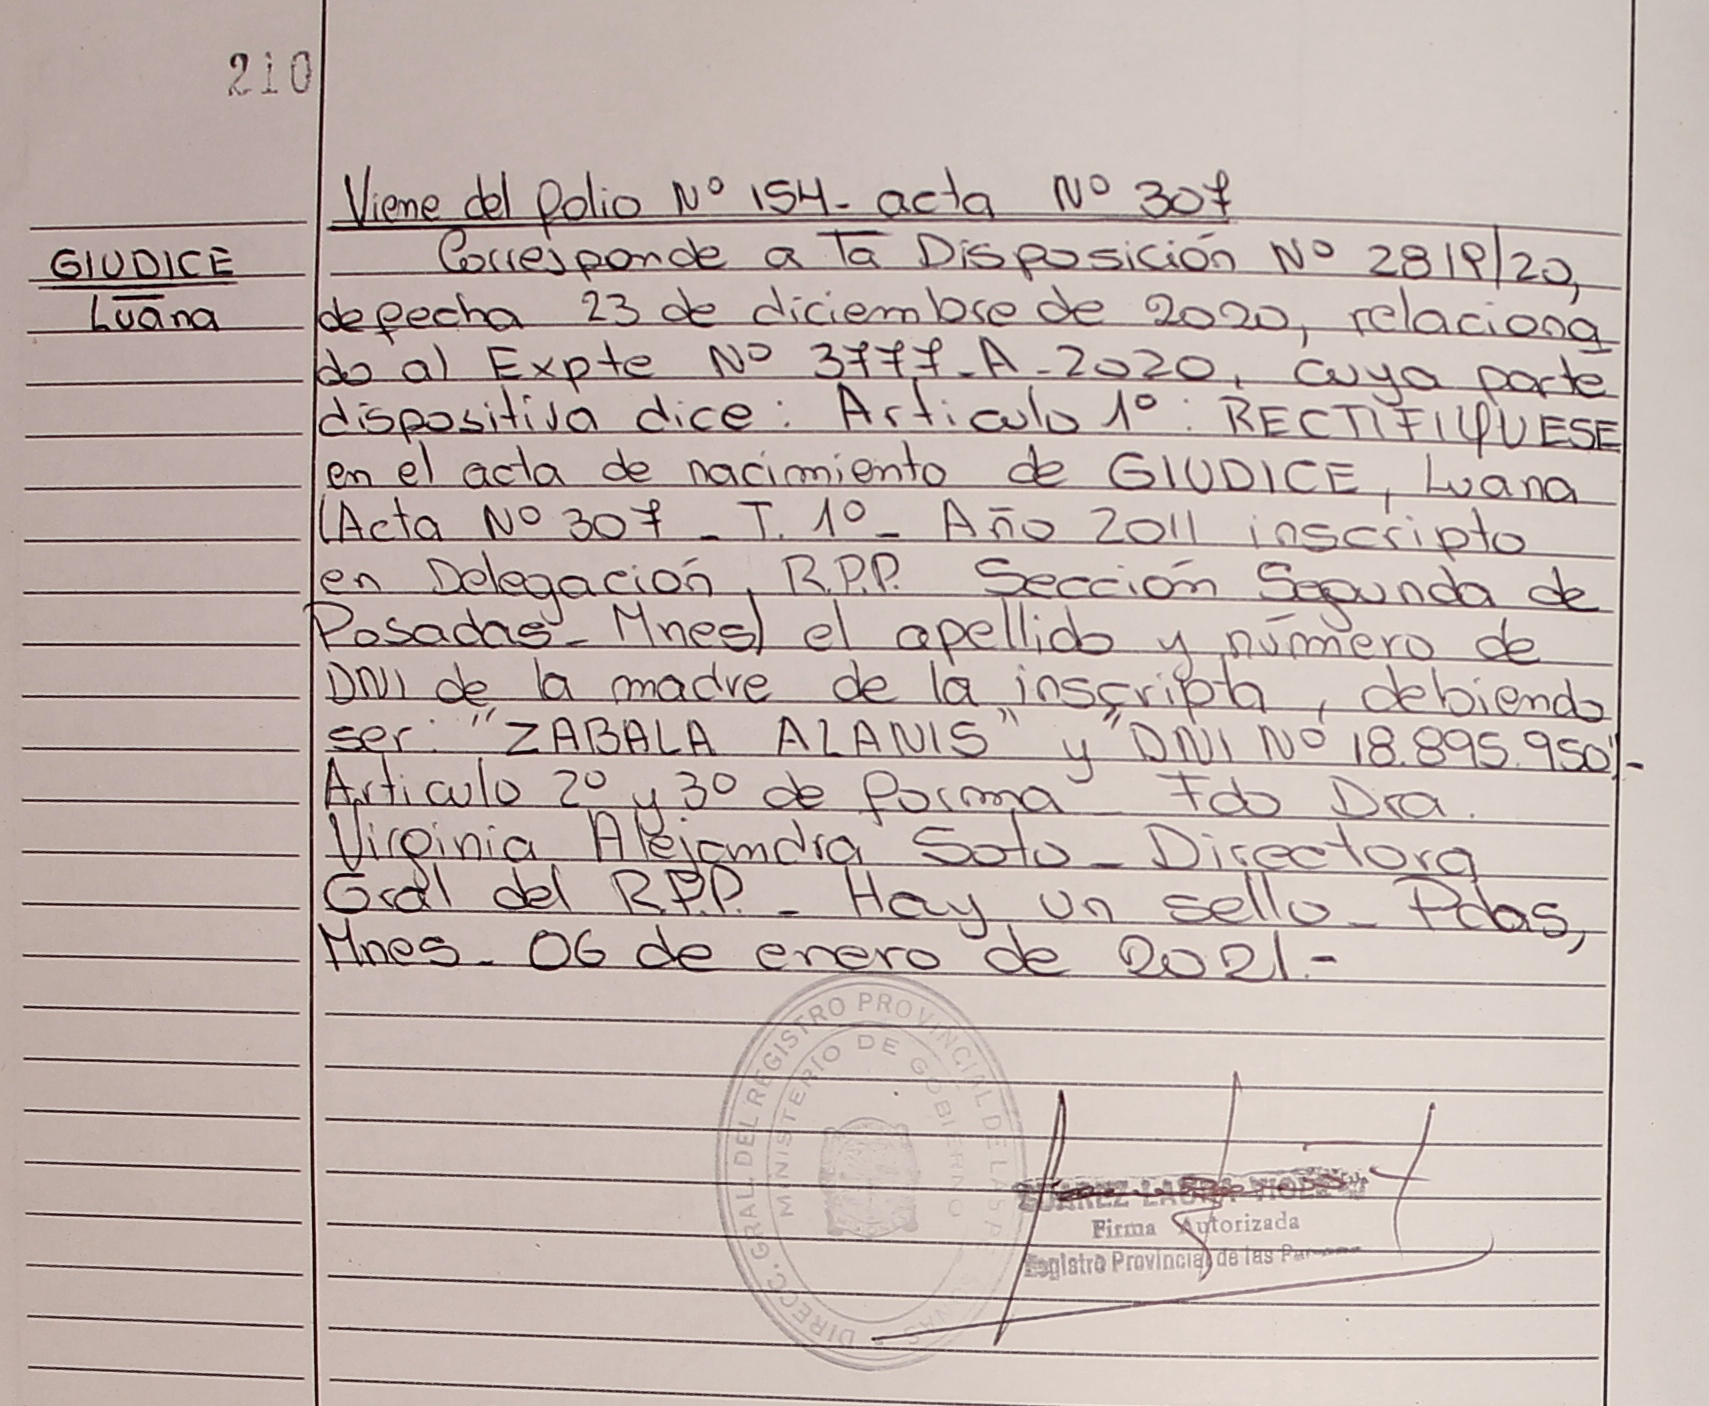 210
Viene del folio Nº 154- acta Nº 307
GIUDICE
Luana
Corresponde a la Disposición Nº 2819/20,
de fecha 23 de diciembre de 2020, relaciona
do al Expte Nº 3777-A-2020, cuya parte
dispositiva dice: Articulo 1º: RECTIFIQUESE
en el acta de nacimiento de GIUDICE, Luana
(Acta Nº 307 - T. 1º - Año 2011 inscripto
en Delegación, R.P.P. Sección Segunda de
Posadas- Mnes) el apellido y número de
DNI de la madre de la inscripta, debiendo
ser: "ZABALA ALANIS" y "DNI Nº 18.895.950"-
Articulo 2º y 3º de forma Fdo Dra.
Virginia Alejandra Soto - Directora
Gral del R.P.P. - Hay un sello - Pdas,
Mnes- 06 de enero de 2021.-
DIRECC. GRAL. DEL REGISTRO PROVINCIAL DE LAS
MINISTERIO DE GOBIERNO
Firma Autorizada
Registro Provincial de las